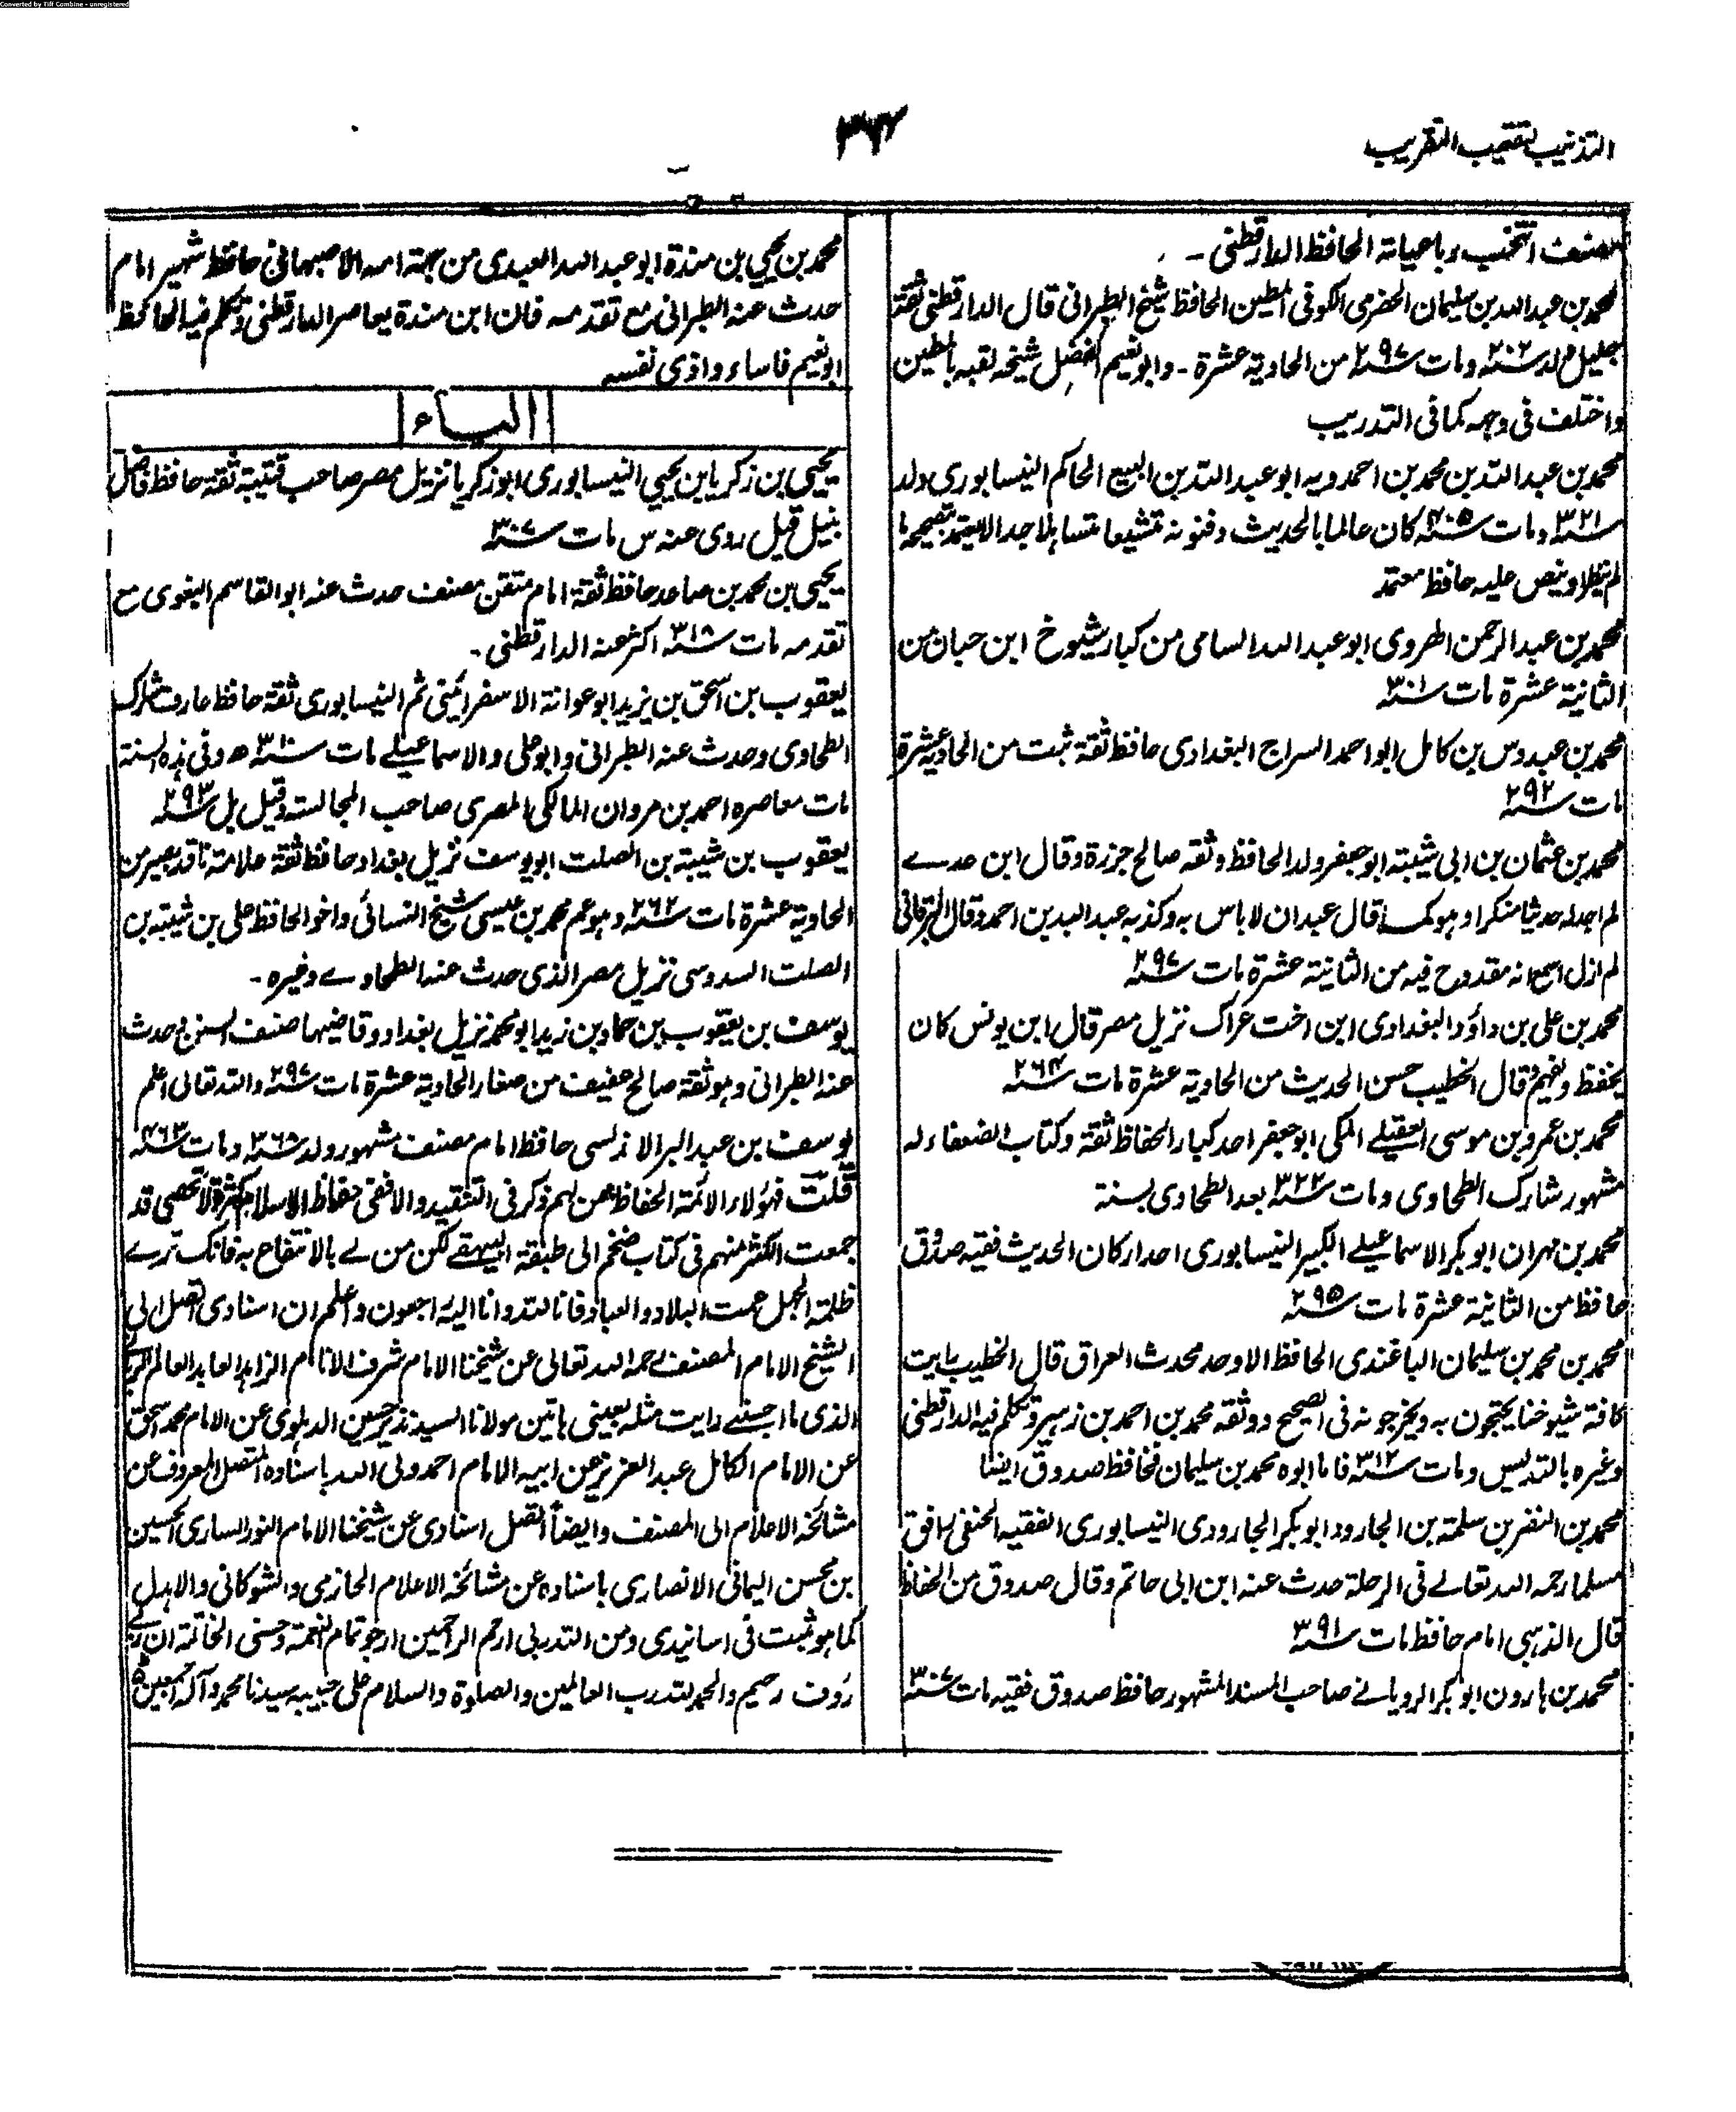 Converted by Tiff Combine - unregistered
التذنيب لتعقيب التقريب
۳۷۴
مصنف انتخب رباحياته الحافظ الدارقطنی -
محمد بن عبد الله بن سليمان الحضرمی الكوفی المطين الحافظ شيخ الطبرانی قال الدارقطنی ثقة
جليل ولد سنة ۲۰۲ ومات سنة ۲۹۷ من الحادية عشرة - وابو نعيم الفضل شيخه لقبه بالمطين
واختلف فی وجهه كما فی التدريب
محمد بن عبد الله بن محمد بن احمدويه ابو عبد الله بن البيع الحاكم النيسابوری ولد
سنة ۳۲۱ ومات سنة ۴۰۵ كان عالما بالحديث وفنونه متشيعا متساهلا جدا لا يعتمد بتصحيحه ما
لم ينظر او ينص عليه حافظ معتمد
محمد بن عبد الرحمن الهروی ابو عبد الله السامی من كبار شيوخ ابن حبان من
الثانية عشرة مات سنة ۳۰۱
محمد بن عبدوس بن كامل ابو احمد السراج البغدادی حافظ ثقة ثبت من الحادية عشرة
مات سنة ۲۹۲
محمد بن عثمان بن ابی شيبة ابو جعفر ولد الحافظ وثقه صالح جزرة وقال ابن عدے
لم اجد له حديثا منكرا وهو كما قال عبدان لا باس به وكذبه عبد الله بن احمد وقال البرقانی
لم ازل اسمع انه مقدوح فيه من الثانية عشرة مات سنة ۲۹۷
محمد بن علی بن داؤد البغدادی ابن اخت عراك نزيل مصر قال ابن يونس كان
يحفظ ويفهم وقال الخطيب حسن الحديث من الحادية عشرة مات سنة ۲۶۴
محمد بن عمرو بن موسی العقيلے المكی ابو جعفر احد كبار الحفاظ ثقة وكتاب الضعفاء له
مشهور شارك الطحاوی ومات سنة ۳۲۲ بعد الطحاوی بسنة
محمد بن مهران ابو بكر الاسماعيلے الكبير النيسابوری احد اركان الحديث فقيه صدوق
حافظ من الثانية عشرة مات سنة ۲۹۵
محمد بن محمد بن سليمان الباغندی الحافظ الاوحد محدث العراق قال الخطيب رايت
كافة شيوخنا يحتجون به ويخرجونه فی الصحيح ووثقه محمد بن احمد بن زهير وتكلم فيه الدارقطنی
وغيره بالتدليس ومات سنة ۳۱۲ فاما ابوه محمد بن سليمان فحافظ صدوق ايضا
محمد بن النضر بن سلمة بن الجارود ابو بكر الجارودی النيسابوری الفقيه الحنفی رافق
مسلما رحمه الله تعالے فی الرحلة حدث عنه ابن ابی حاتم وقال صدوق من الحفاظ
قال الذهبی امام حافظ مات سنة ۳۹۱
محمد بن هارون ابو بكر الرويانے صاحب المسند المشهور حافظ صدوق فقيه مات سنة ۳۰۷
محمد بن يحيی بن مندة ابو عبد الله العبدی من جهة امه الاصبهانی حافظ شهير امام
حدث عنه الطبرانی مع تقدمه فان ابن مندة يعاصر الدارقطنی وتكلم فيه الحافظ
ابو نعيم فاساء واذی نفسه
الياء
يحيی بن زكريا بن يحيی النيسابوری ابو زكريا نزيل مصر صاحب قتيبة ثقة حافظ فاضل
نبيل قيل روی عنه س مات سنة ۳۰۷
يحيی بن محمد بن صاعد حافظ ثقة امام متقن مصنف حدث عنه ابو القاسم البغوی مع
تقدمه مات سنة ۳۱۸ اكثر عنه الدارقطنی -
يعقوب بن اسحق بن يزيد ابو عوانة الاسفرائينی ثم النيسابوری ثقة حافظ عارف شارك
الطحاوی وحدث عنه الطبرانی وابو علی والاسماعيلے مات سنة ۳۱۰ ھ وفی هذه السنة
مات معاصره احمد بن مروان المالكی المصری صاحب المجالسة وقيل بل سنة ۲۹۳
يعقوب بن شيبة بن الصلت ابو يوسف نزيل بغداد حافظ ثقة علامة ناقد بصير من
الحادية عشرة مات سنة ۲۶۲ وهو عم محمد بن عيسی شيخ النسائی واخو الحافظ علی بن شيبة بن
الصلت السدوسی نزيل مصر الذی حدث عنه الطحاوے وغيره -
يوسف بن يعقوب بن حماد بن زيد ابو محمد نزيل بغداد وقاضيها صنف السنن وحدث
عنه الطبرانی وهو ثقة صالح عفيف من صغار الحادية عشرة مات سنة ۲۹۷ والله تعالی اعلم
يوسف بن عبد البر الاندلسی حافظ امام مصنف مشهور ولد سنة ۳۶۸ ومات سنة ۴۶۳
قلت فهؤلاء الائمة الحفاظ ممن لهم ذكر فی التعقيب والا ففی حفاظ الاسلام كثرة لا تحصی قد
جمعت اكثر منهم فی كتاب ضخم الی طبقة البيهقے لكن من لے بالانتفاع به فانك ترے
ظلمة الجهل عمت البلاد والعباد فانا لله وانا اليه راجعون واعلم ان اسنادی اتصل الی
الشيخ الامام المصنف رحمه الله تعالی عن شيخنا الامام شرف الانام الزاهد العابد العالم الربانی
الذی ما احسبنے رايت مثله بعينی هاتين مولانا السيد نذير حسين الدهلوی عن الامام محمد اسحق
عن الامام الكامل عبد العزيز عن ابيه الامام احمد ولی الله باسناده المتصل المعروف عن
مشائخه الاعلام الی المصنف وايضا اتصل اسنادی عن شيخنا الامام النور الساری الحسين
بن محسن اليمانی الانصاری باسناده عن مشائخه الاعلام الحازمی والشوكانی والاهدل
كما هو ثبت فی اسانيدی ومن الله ربی ارحم الراحمين ارجو تمام النعمة وحسنی الخاتمة ان ربے
رؤف رحيم والحمد لله رب العالمين والصلوة والسلام علی حبيبه سيدنا محمد وآله اجمعين